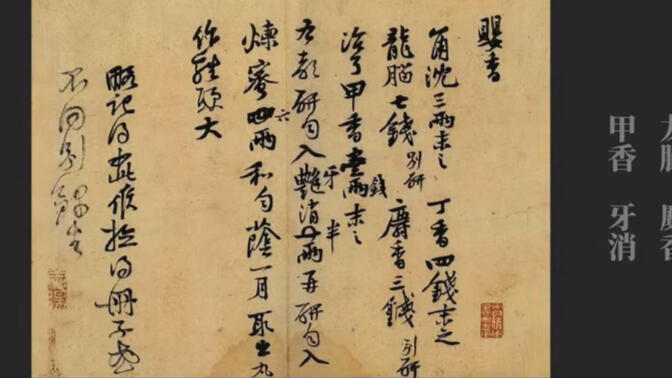 嬰香
角沈三兩末之 丁香四錢末之
龍腦七錢別研 麝香三錢別研
治弓甲香壹錢末之
右都研勻入牙消半兩再研勻入
煉蜜六兩和勻蔭一月取出丸
作雞頭大
略記得此候檢得冊子或
不同別錄去
甲香 牙消